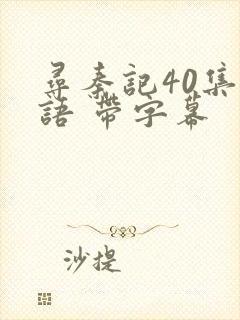 尋秦記40集
語 帶字幕
沙提